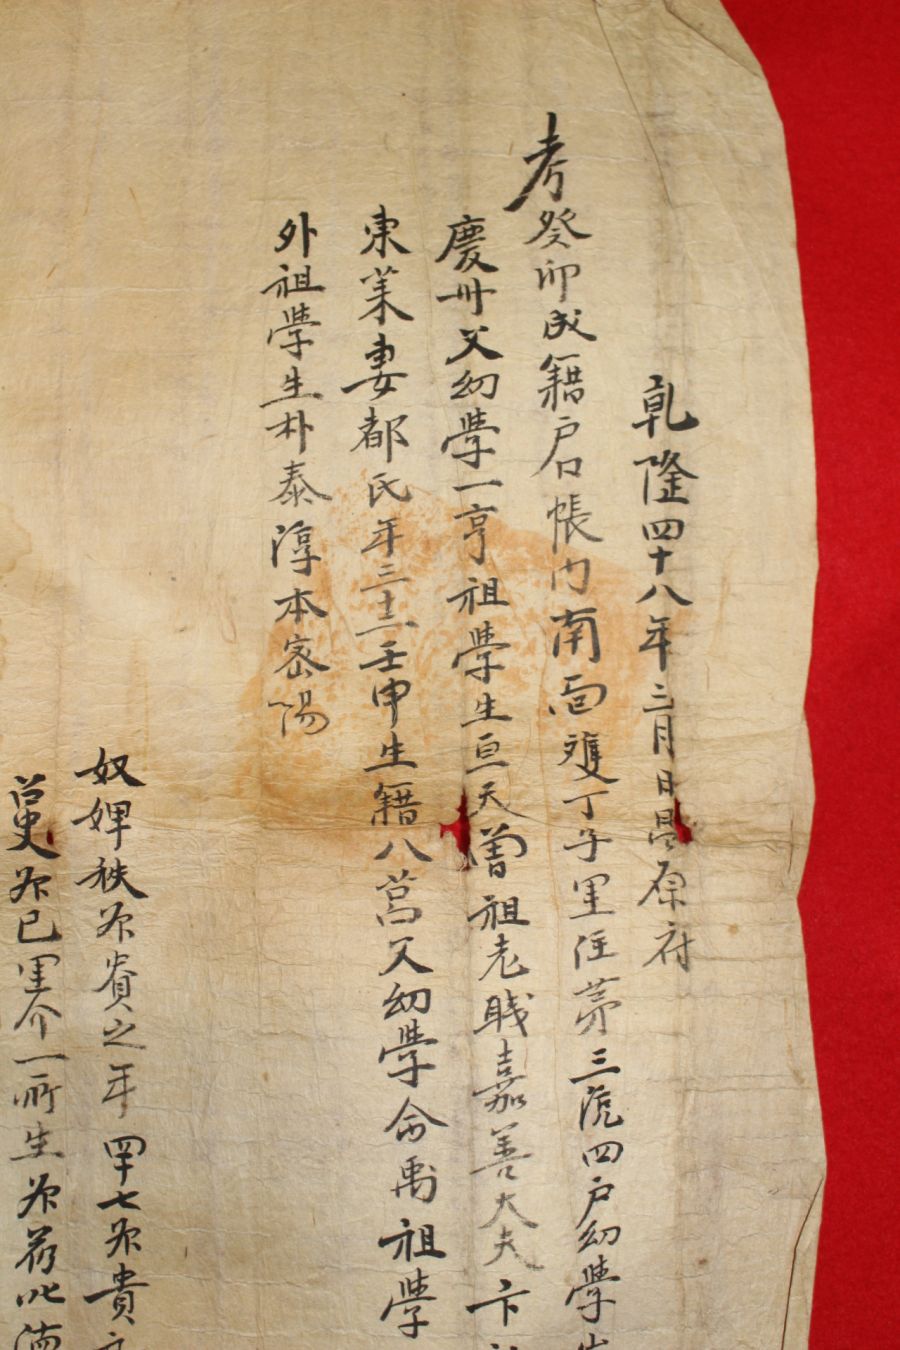 乾隆四十八年三月日昌原府
考癸卯成籍戶帳內南面丁子里住第三統四戶幼學
慶州父幼學一亨祖學生亘天曾祖老職嘉善大夫
東萊妻都氏年三十二壬申生籍八莒父幼學命禹祖學
外祖學生朴泰淳本密陽
奴婢秩貴之年四七貴
已里介一所生